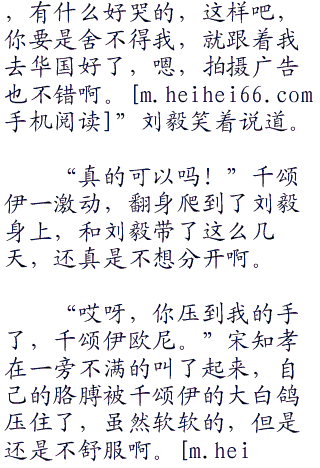 ，有什么好哭的，这样吧，
你要是舍不得我，就跟着我
去华国好了，嗯，拍摄广告
也不错啊。[m.heihei66.com
手机阅读]”刘毅笑着说道。
“真的可以吗！”千颂
伊一激动，翻身爬到了刘毅
身上，和刘毅带了这么几
天，还真是不想分开啊。
“哎呀，你压到我的手
了，千颂伊欧尼。”宋知孝
在一旁不满的叫了起来，自
己的胳膊被千颂伊的大白鸽
压住了，虽然软软的，但是
还是不舒服啊。[m.hei